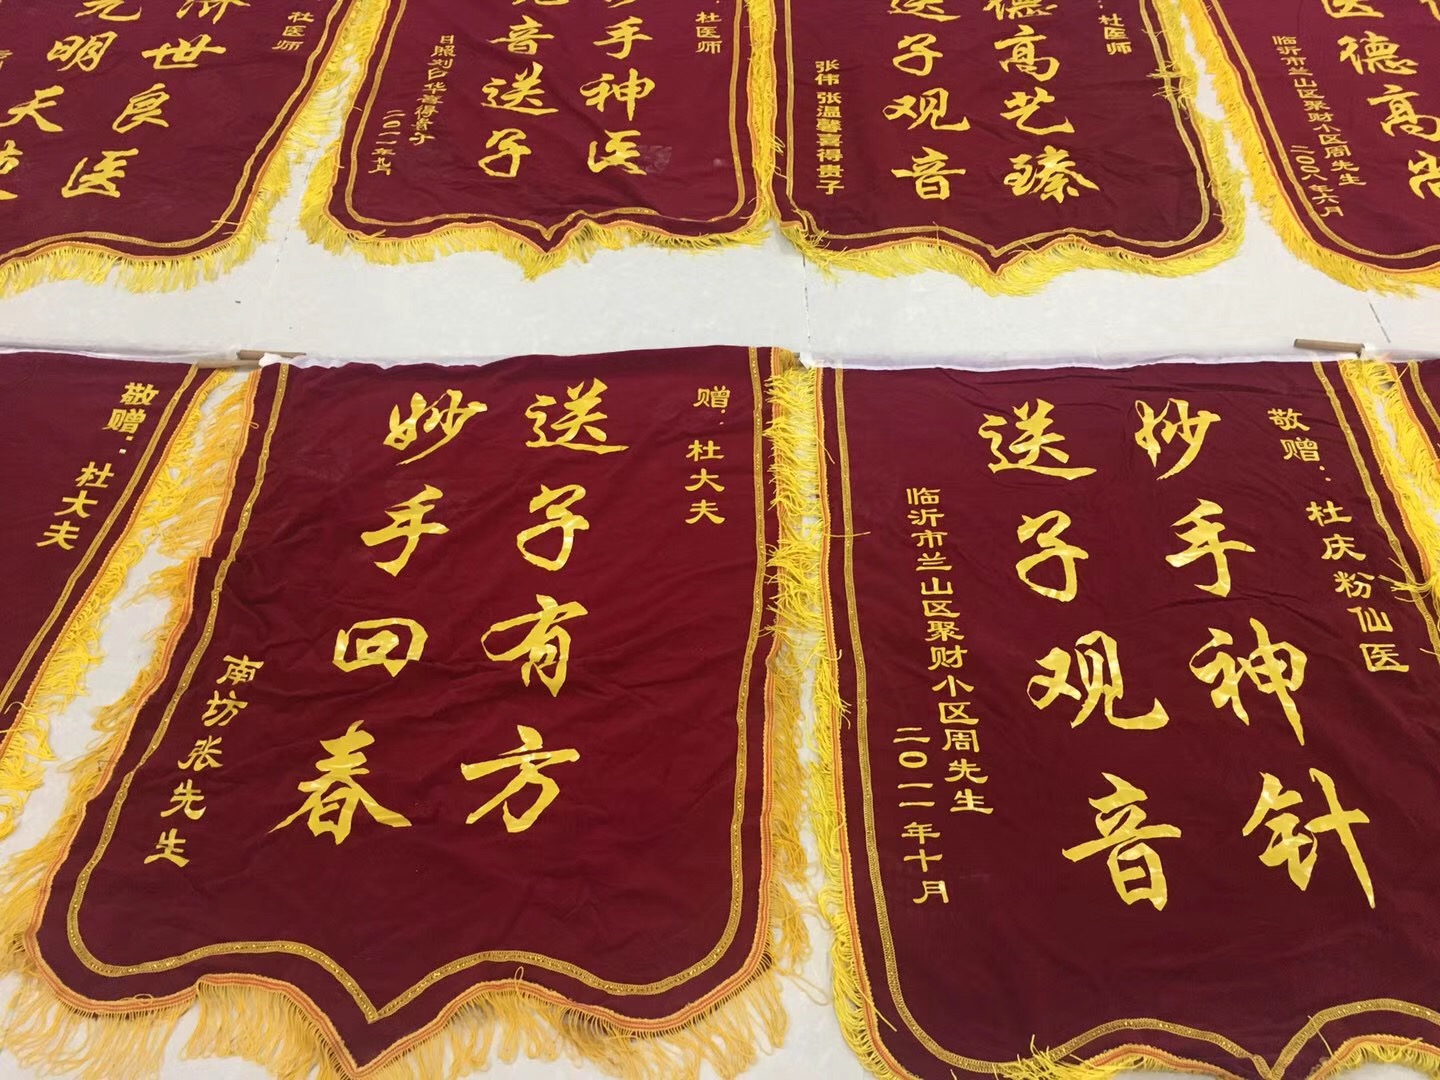 杜医师
世
良
医
明
天
杜医师
手
神
医
音
送
子
日照刘
华喜得贵子
二〇一一年九月
杜医师
德高艺臻
送子观音
张伟 张温馨喜得贵子
医德高尚
临沂市兰山区聚财小区周先生
二〇〇八年六月
敬赠：杜大夫
赠：杜大夫
送子有方
妙手回春
南坊张先生
敬赠：杜庆粉仙医
妙手神针
送子观音
临沂市兰山区聚财小区周先生
二〇一一年十月